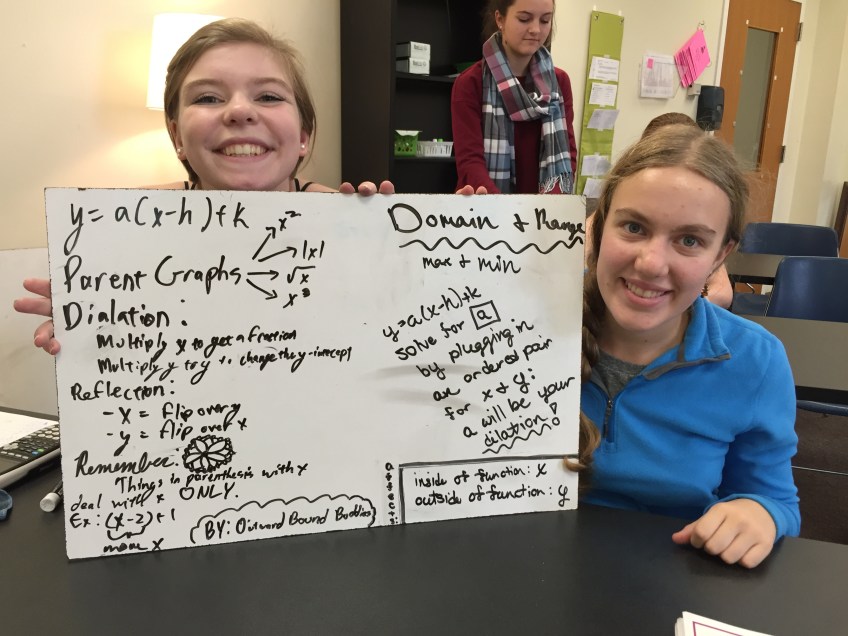 y = a(x-h)+k
x²
|x|
√x
x³
Parent Graphs
Dialation:
Multiply x to get a fraction
Multiply y try to change the y-intercept
Reflection:
-x = flip over y
-y = flip over x
Remember:
Things in parenthesis with x
deal with x ONLY.
Ex: (x-2)+1
move x
BY: Outward Bound Buddies
Domain & Range
max & min
y=a(x-h)+k
solve for a
by plugging in
an ordered pair
for x & y:
a will be your
dilation!
inside of function: x
outside of function: y